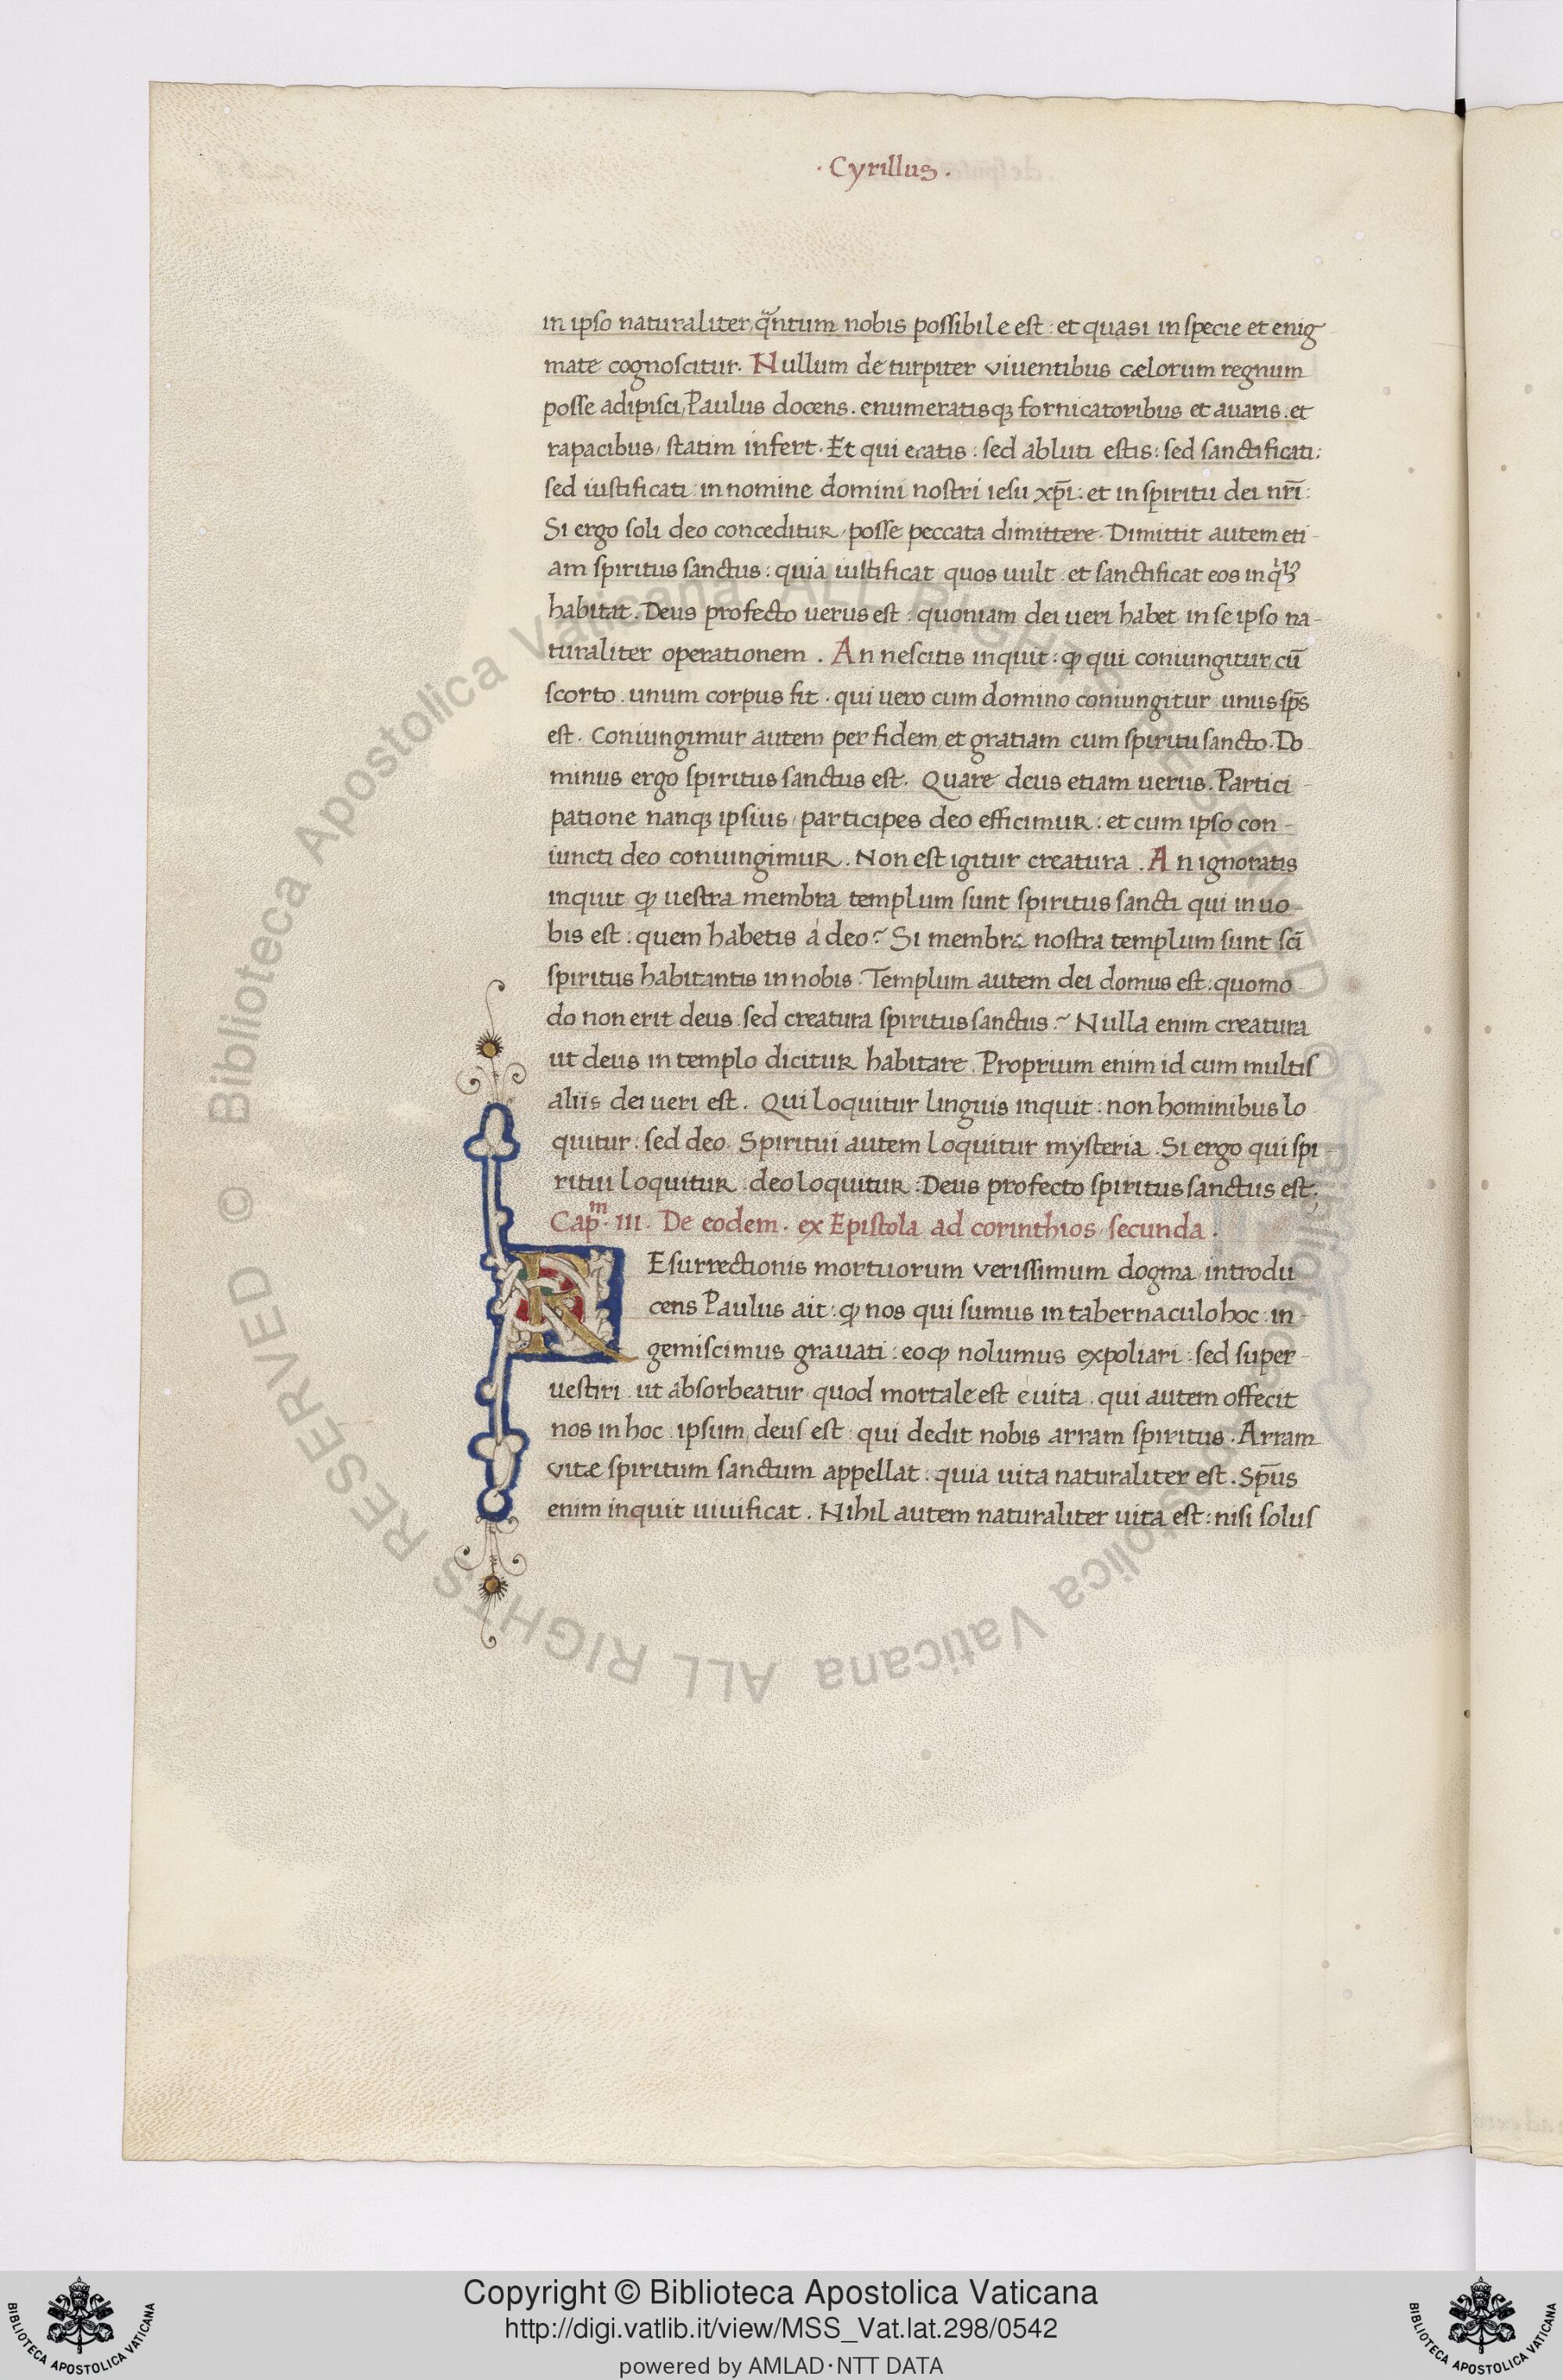 · Cyrillus ·
in ipso naturaliter, q̃ntum nobis possibile est : et quasi in specie et enig
mate cognoscitur. Nullum de turpiter viventibus cælorum regnum
posse adipisci, Paulus docens . enumeratisqꝫ fornicatoribus et avaris . et
rapacibus, statim infert . Et qui eratis : sed abluti estis : sed sanctificati :
sed iustificati : in nomine domini nostri iesu xp̄i : et in spiritu dei nr̄i :
Si ergo soli deo conceditur, posse peccata dimittere . Dimittit autem eti-
am spiritus sanctus : quia iustificat quos uult . et sanctificat eos in
habitat . Deus profecto uerus est : quoniam dei ueri habet in se ipso na-
turaliter operationem . An nescitis inquit : ꝙ qui coniungitur cū
scorto . unum corpus fit . qui uero cum domino coniungitur unus sp̄s
est . Coniungimur autem per fidem et gratiam cum spiritu sancto . Do-
minus ergo spiritus sanctus est . Quare deus etiam uerus . Partici-
patione nanqꝫ ipsius, participes deo efficimur : et cum ipso con-
iuncti deo coniungimur . Non est igitur creatura . An ignoratis
inquit ꝙ uestra membra templum sunt spiritus sancti qui in uo-
bis est : quem habetis á deo? Si membra nostra templum sunt sc̄i
spiritus habitantis in nobis . Templum autem dei domus est : quomo-
do non erit deus sed creatura spiritus sanctus? Nulla enim creatura
ut deus in templo dicitur habitare . Proprium enim id cum multis
aliis dei ueri est . Qui loquitur linguis inquit : non hominibus lo
quitur : sed deo . Spiritui autem loquitur mysteria . Si ergo qui spi-
ritui loquitur deo loquitur : Deus profecto spiritus sanctus est .
Cap.m III . De eodem . ex Epistola ad corinthios, secunda .
REsurrectionis mortuorum verissimum dogma introdu
cens Paulus ait : ꝙ nos qui sumus in tabernaculo hoc : in-
gemiscimus grauati : eoꝙ nolumus expoliari : sed super-
uestiri . ut absorbeatur quod mortale est é uita . qui autem effecit
nos in hoc ipsum, deus est : qui dedit nobis arram spiritus . Arram
vitæ spiritum sanctum appellat : quia uita naturaliter est . Sp̄us
enim inquit uiuificat . Nihil autem naturaliter uita est : nisi solus
© Biblioteca Apostolica Vaticana ALL RIGHTS RESERVED © Biblioteca Apostolica Vaticana ALL RIGHTS RESERVED
Copyright © Biblioteca Apostolica Vaticana
http://digi.vatlib.it/view/MSS_Vat.lat.298/0542
powered by AMLAD · NTT DATA
BIBLIOTECA APOSTOLICA VATICANA
BIBLIOTECA APOSTOLICA VATICANA